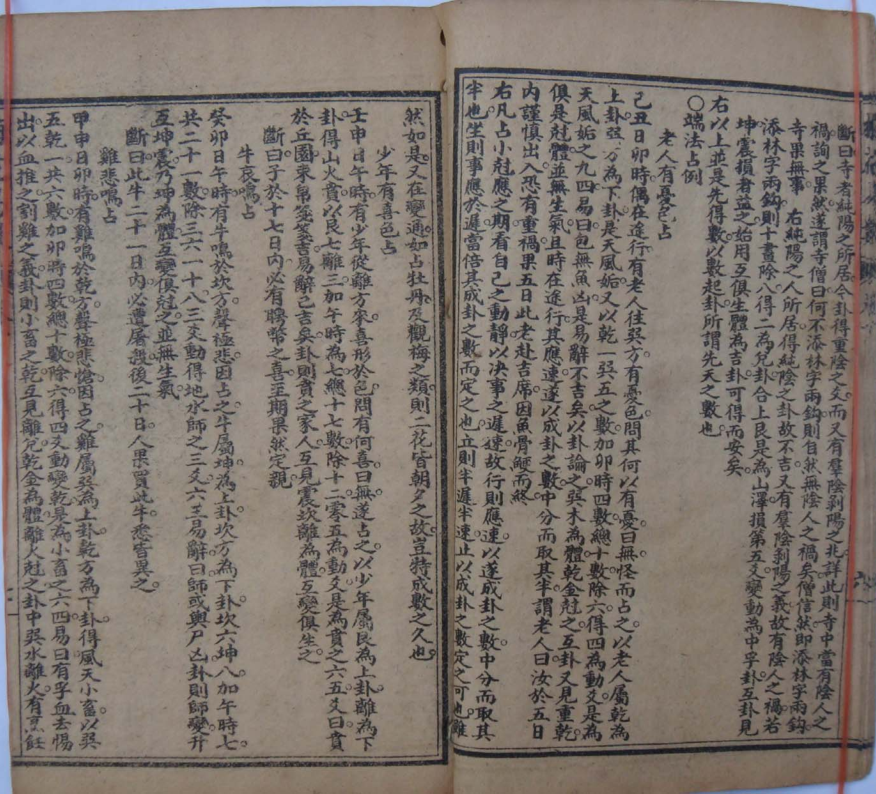 斷曰寺者純陽之所居今卦得重陰之爻而又有羣陰剝陽之兆詳此則寺中當有陰人之
禍詢之果然遂謂寺僧曰何不添林字兩鈎則自然無陰人之禍矣僧信然即添林字兩鈎
寺果無事　右純陽之人所居得純陰之卦故不吉又有羣陰剝陽之義故有陰人之禍若
添林字兩鈎則十畫除八得二為兌卦合上艮是為山澤損第五爻變動為中孚卦互卦見
坤震損者益之始用互俱生體為吉卦可得而安矣
右以上並是先得數以數起卦所謂先天之數也
〇端法占例
老人有憂色占
己丑日卯時偶在途行有老人往巽方有憂色問其何以有憂曰無怪而占之以老人屬乾為
上卦巽方為下卦是天風姤又以乾一巽五之數加卯時四數總十數除六得四為動爻是為
天風姤之九四易曰包無魚凶是易辭不吉矣以卦論之巽木為體乾金尅之互卦又見重乾
俱是尅體並無生氣且時在途行其應速遂以成卦之數中分而取其半謂老人曰汝於五日
內謹慎出入恐有重禍果五日此老赴吉席因魚骨鯁而終
右凡占小尅應之期看自己之動靜以決事之遲速故行則應速以遂成卦之數中分而取其
半也坐則事應於遲當倍其成卦之數而定之也立則半遲半速止以成卦之數定之可也雖
然如是又在變通如占牡丹及觀梅之類則二花皆朝夕之故豈特成數之久也
少年有喜色占
壬申日午時有少年從離方來喜形於色問有何喜曰無遂占之以少年屬艮為上卦離為下
卦得山火賁以艮七離三加午時為七總十七數除十二零五為動爻是為賁之六五爻曰賁
於丘園束帛箋箋吉易辭已吉矣卦則賁之家人互見震坎離為體互變俱生之
斷曰子於十七日內必有聘幣之喜至期果然定親
牛哀鳴占
癸卯日午時有牛鳴於坎方聲極悲因占之牛屬坤為上卦坎方為下卦坎六坤八加午時七
共二十一數除三六一十八三爻動得地水師之三爻六三易辭曰師或輿尸凶卦則師變升
互坤震乃坤為體互變俱尅之並無生氣
斷曰此牛二十一日內必遭屠殺後二十日人果買此牛悉皆異之
雞悲鳴占
甲申日卯時有雞鳴於乾方聲極悲愴因占之雞屬巽為上卦乾方為下卦得風天小畜以巽
五乾一共六數加卯時四數總十數除六得四爻動變乾是為小畜之六四易曰有孚血去惕
出以血推之割雞之義卦則小畜之乾互見離兌乾金為體離火尅之卦中巽水離火有烹飪